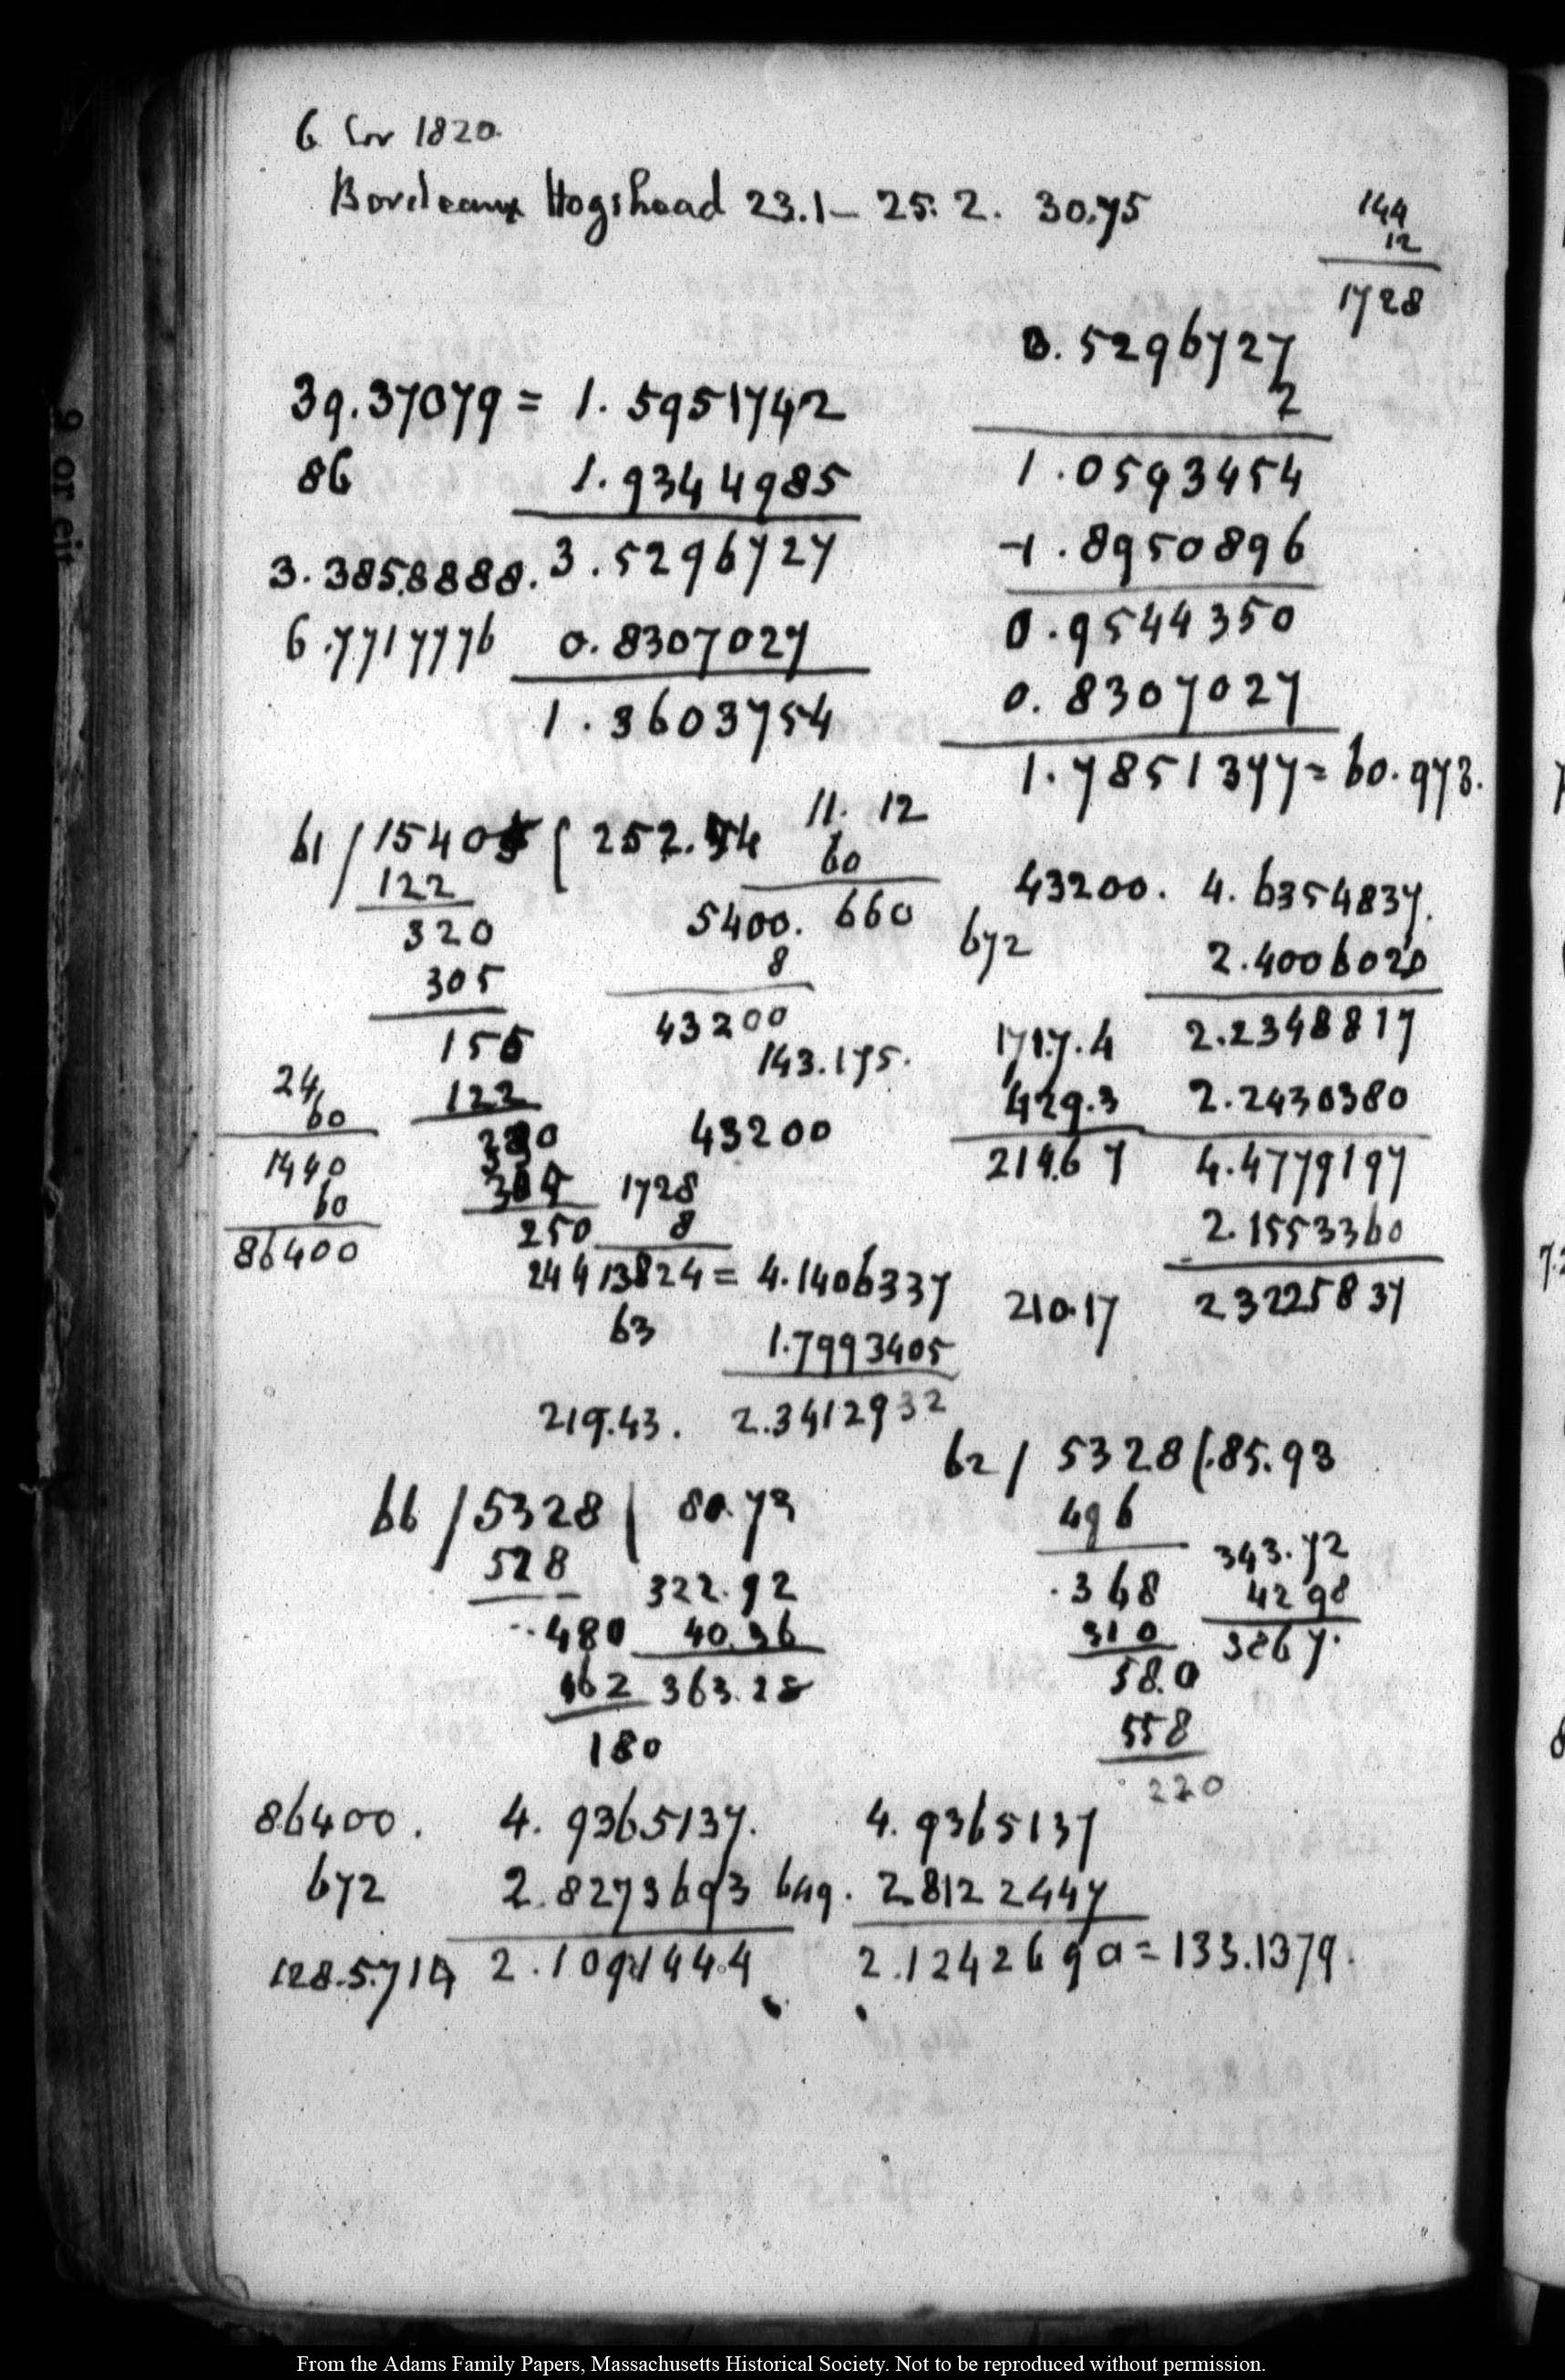 6 1820.
Bordeaux Hogshead 23.1- 25. 2. 30.75
144
12
1728
0.5296727
2
1.0593454
-1.8950896
0.9544350
0.8307027
1.7851377= 60.973.
39.37079 = 1.5951742
86 1.9344985
3.3858888. 3.5296727
6.7717776 0.8307027
1.3603754
61 / 15405 ( 252.54
122
320
305
155
122
330
305
250
244
11. 12
60
5400. 660
8
43200
143.175.
43200
24
60
1440
60
86400
1728
8
13824 = 4.1406337
63 1.7993405
219.43. 2.3412932
43200. 4.6354837.
672 2.4006020
1717.4 2.2348817
429.3 2.2430380
2146 7 4.4779197
2.1553360
210.17 2 3225837
66 / 5328 ( 80.73
528
480
462
180
322.92
40.36
363.28
62 / 5328 (.85.93
496
.368
310
58.0
558
220
343.72
42 98
3867.
86400. 4. 9365137.
672 2.8273693
128.5.714 2.1091444
4.9365137
649. 2.8122447
2.1242690 = 133.1379.
9 or eit
From the Adams Family Papers, Massachusetts Historical Society. Not to be reproduced without permission.